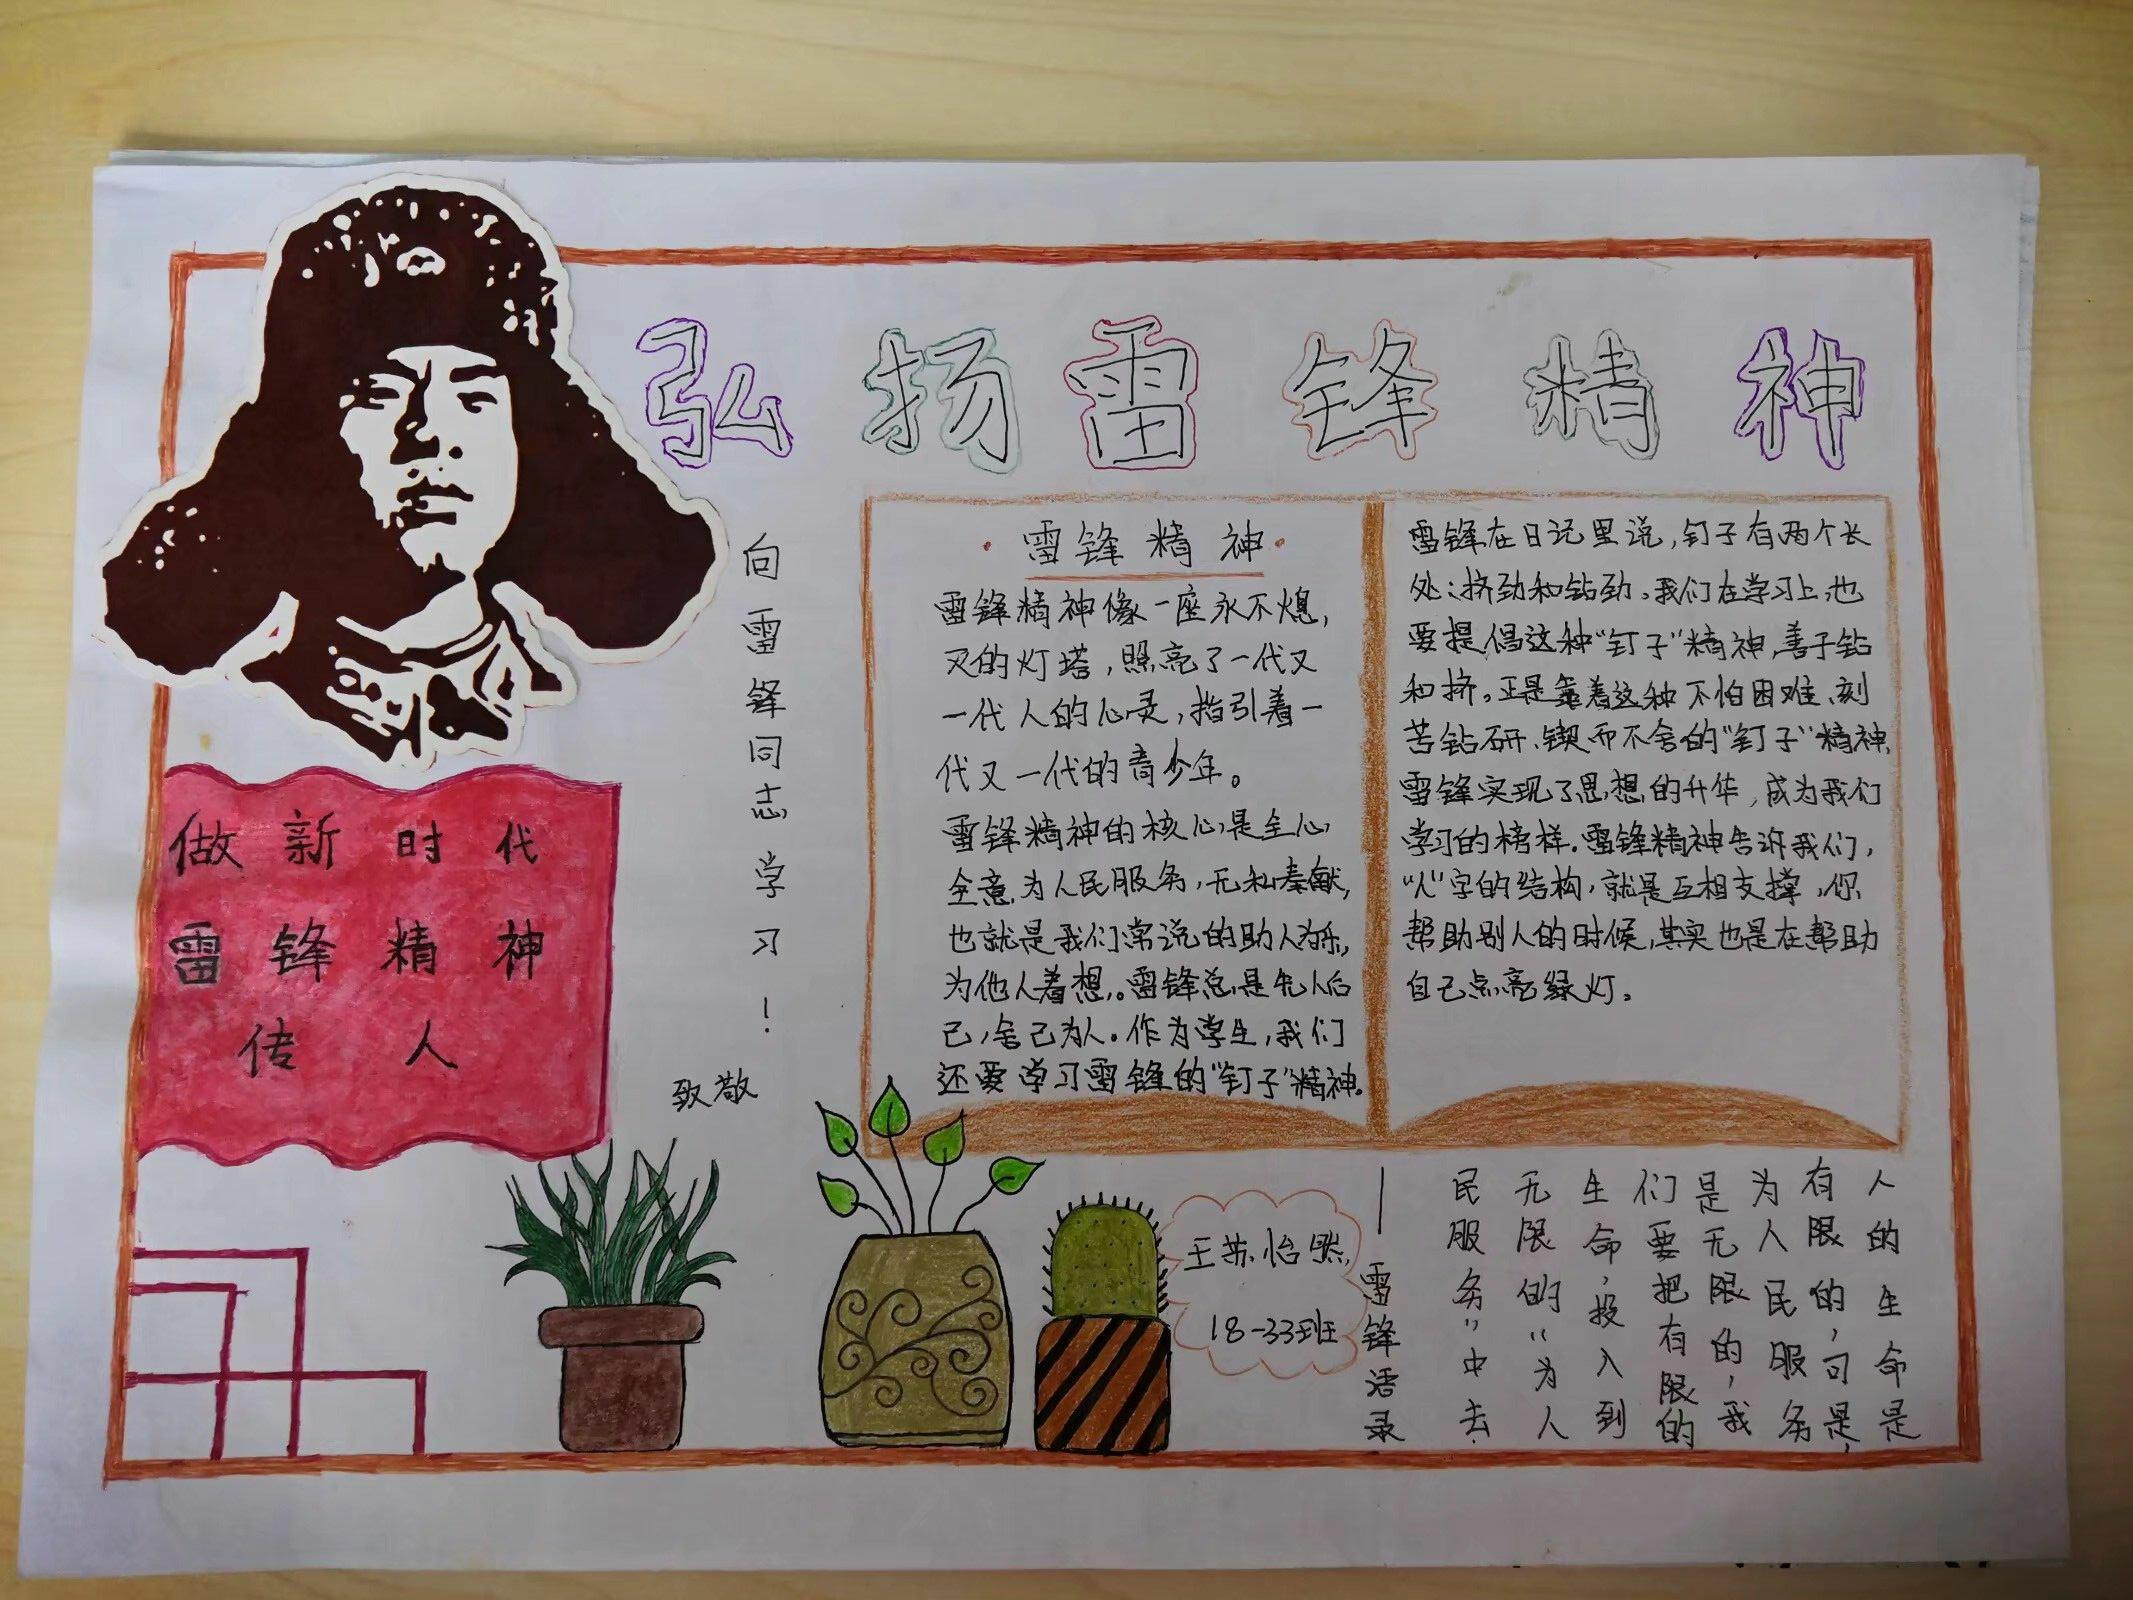 弘扬雷锋精神
向雷锋同志学习！
致敬
做新时代
雷锋精神
传人
·雷锋精神·
雷锋精神像一座永不熄，
灭的灯塔，照亮了一代又
一代人的心灵，指引着一
代又一代的青少年。
雷锋精神的核心是全心
全意为人民服务，无私奉献，
也就是我们常说的助人为乐，
为他人着想，。雷锋总是先人后
己，舍己为人。作为学生，我们
还要学习雷锋的“钉子”精神。
雷锋在日记里说，钉子有两个长
处：挤劲和钻劲。我们在学习上，也
要提倡这种“钉子”精神，善于钻
和挤。正是靠着这种不怕困难、刻
苦钻研、锲而不舍的“钉子”精神，
雷锋实现了思想的升华，成为我们
学习的榜样。雷锋精神告诉我们，
“人”字的结构，就是互相支撑，你
帮助别人的时候，其实也是在帮助
自己点亮绿灯。
人的生命是
有限的，可是，
为人民服务
是无限的，我
们要把有限的
生命，投入到
无限的“为人
民服务”中去
——雷锋语录
王苏怡然
18-33班